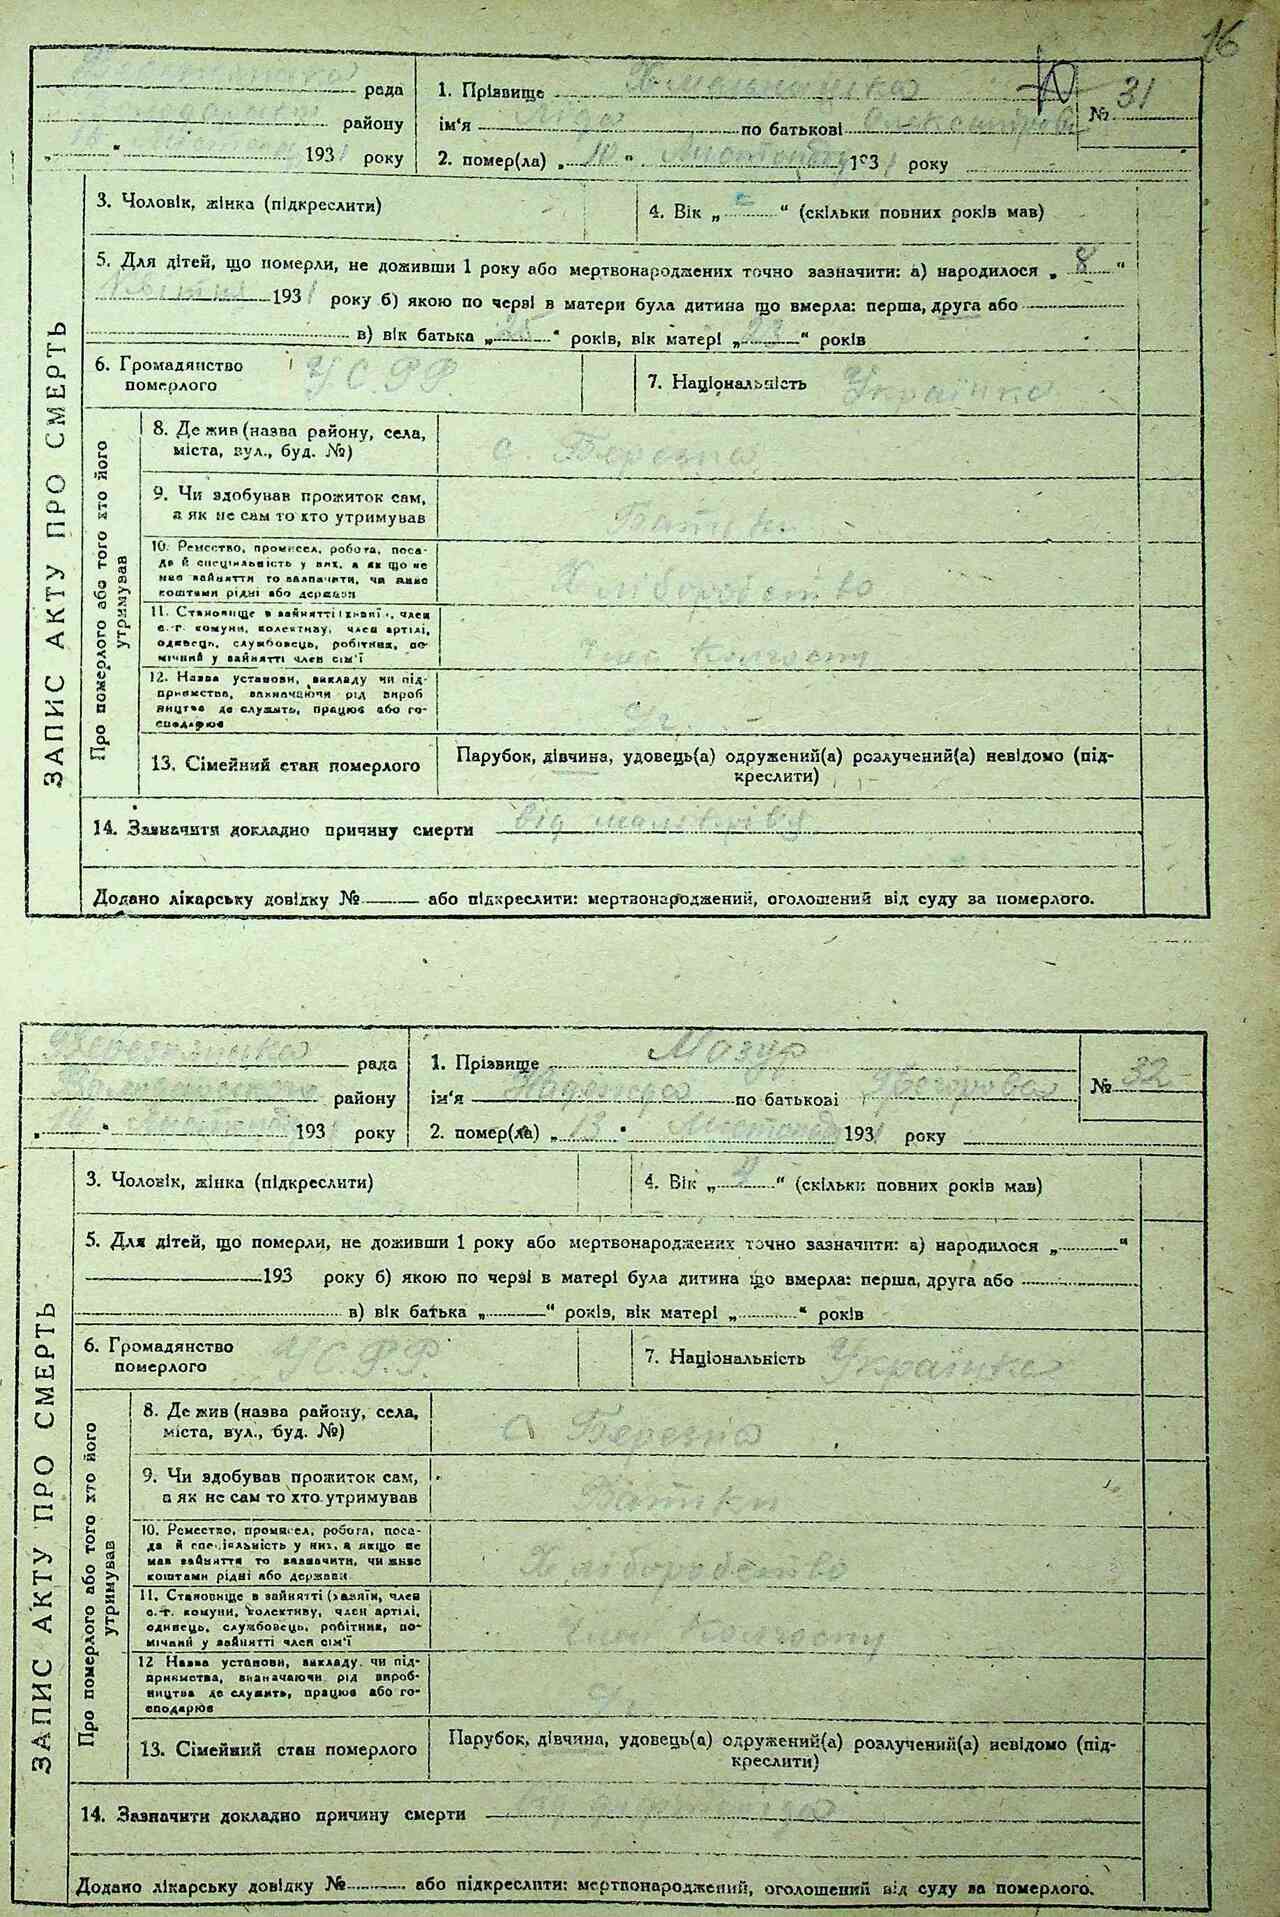 16
рада
1. Прізвище Хмельницька
№ 31
району
ім'я Ліда по батькові
1931 року
2. помер(ла) „10" Листопаду 1931 року
3. Чоловік, жінка (підкреслити)
4. Вік „ " (скільки повних років мав)
5. Для дітей, що померли, не доживши 1 року або мертвонароджених точно зазначити: а) народилося „8"
Квітня 1931 року б) якою по черзі в матери була дитина що вмерла: перша, друга або
в) вік батька „25" років, вік матері „23" років
6. Громадянство
померлого
УСРР
7. Національність Українка
ЗАПИС АКТУ ПРО СМЕРТЬ
Про померлого або того хто його
утримував
8. Де жив (назва району, села,
міста, вул., буд. №)
с. Березна
9. Чи здобував прожиток сам,
а як не сам то хто утримував
Батьки
10. Ремество, промисел, робота, поса-
да й спеціяльність у них, а як що не
мав зайняття то зазначити, чи живе
коштами рідні або держави
Хліборобство
11. Становище в зайнятті (хазяїн, член
с.-г. комуни, колективу, член артілі,
одинець, службовець, робітник, по-
мічний у зайнятті член сім'ї
член Колгоспу
12. Назва установи, викладу чи під-
приємства, визначаючи рід вироб
ництва де служить, працює або го-
сподарює
13. Сімейний стан померлого
Парубок, дівчина, удовець(а) одружений(а) розлучений(а) невідомо (під-
креслити)
14. Зазначити докладно причину смерти від малокрівя
Додано лікарську довідку № або підкреслити: мертвонароджений, оголошений від суду за померлого.
Березнянська рада
1. Прізвище Мазур
№ 32
району
ім'я Надежда по батькові
1931 року
2. помер(ла) „13" Листопаду 1931 року
3. Чоловік, жінка (підкреслити)
4. Вік „4" (скільки повних років мав)
5. Для дітей, що померли, не доживши 1 року або мертвонароджених точно зазначити: а) народилося „ "
193 року б) якою по черзі в матері була дитина що вмерла: перша, друга або
в) вік батька „ " років, вік матері „ " років
6. Громадянство
померлого
УСРР
7. Національність Українка
ЗАПИС АКТУ ПРО СМЕРТЬ
Про померлого або того хто його
утримував
8. Де жив (назва району, села,
міста, вул., буд. №)
с Березна
9. Чи здобував прожиток сам,
а як не сам то хто утримував
Батьки
10. Ремество, промисел, робота, поса-
да й спеціяльність у них, а якщо не
мав зайняття то зазначити, чи живе
коштами рідні або держави
Хліборобство
11. Становище в зайнятті (хазяїн, член
с.-г. комуни, колективу, член артілі,
одинець, службовець, робітник, по-
мічний у зайнятті член сім'ї
член Колгоспу
12 Назва установи, викладу чи під-
приємства, визначаючи рід вироб-
ництва де служить, працює або го-
сподарює
13. Сімейний стан померлого
Парубок, дівчина, удовець(а) одружений(а) розлучений(а) невідомо (під-
креслити)
14. Зазначити докладно причину смерти
Додано лікарську довідку № або підкреслити: мертвонароджений, оголошений від суду за померлого.